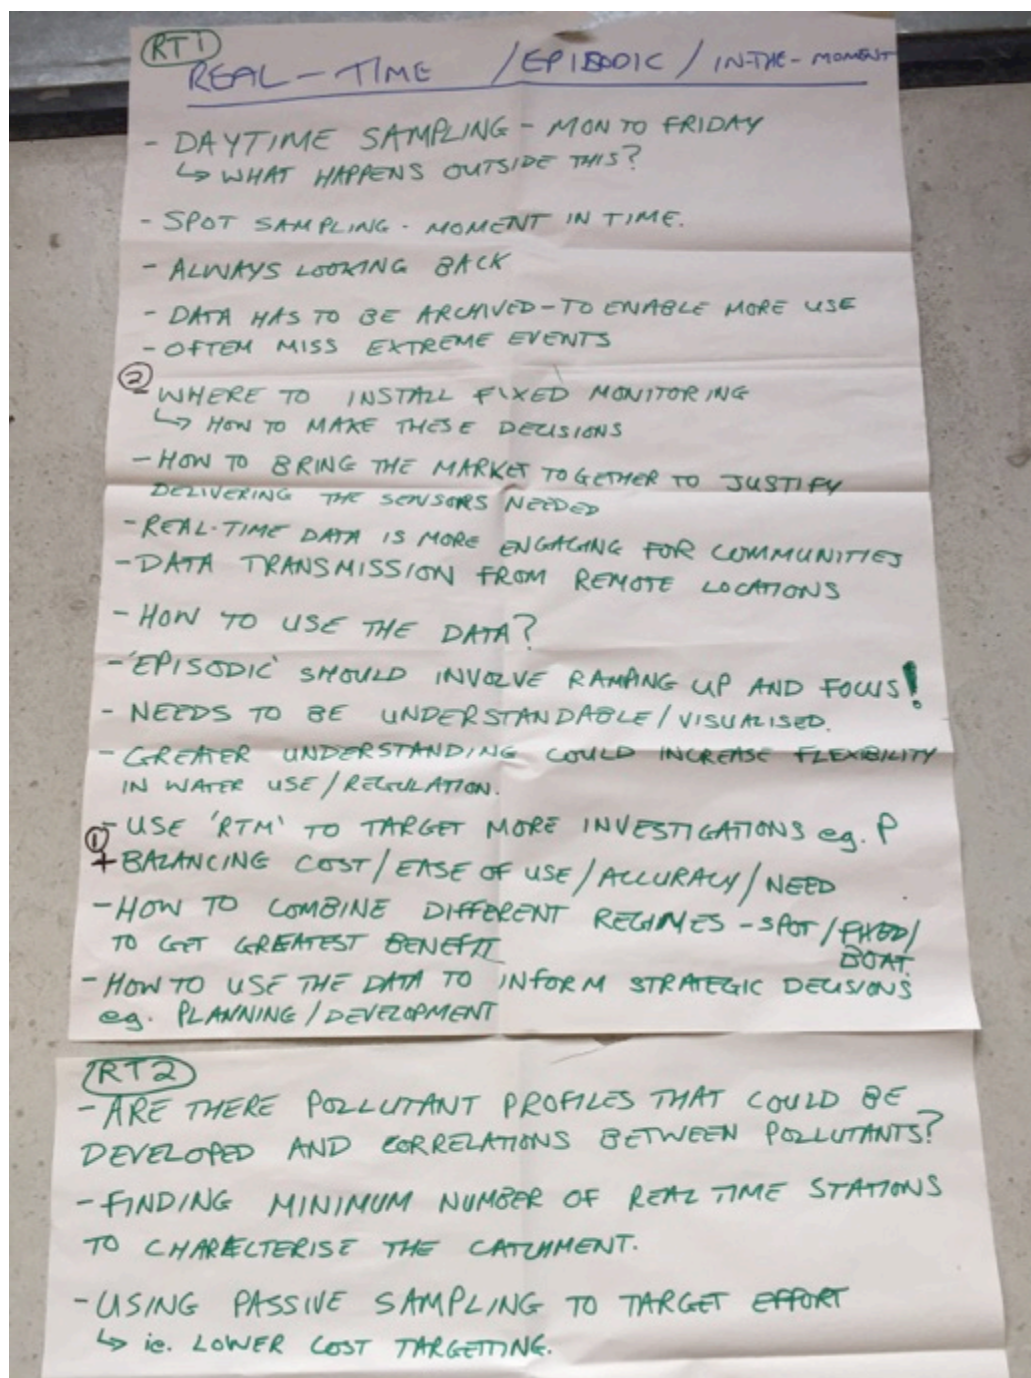 RT1
REAL-TIME /EPISODIC / IN-THE-MOMENT
- DAYTIME SAMPLING - MON TO FRIDAY
↳ WHAT HAPPENS OUTSIDE THIS?
- SPOT SAMPLING - MOMENT IN TIME.
- ALWAYS LOOKING BACK
- DATA HAS TO BE ARCHIVED - TO ENABLE MORE USE
- OFTEM MISS EXTREME EVENTS
② WHERE TO INSTALL FIXED MONITORING
↳ HOW TO MAKE THESE DECISIONS
- HOW TO BRING THE MARKET TOGETHER TO JUSTIFY
DELIVERING THE SENSORS NEEDED
- REAL-TIME DATA IS MORE ENGAGING FOR COMMUNITIES
- DATA TRANSMISSION FROM REMOTE LOCATIONS
- HOW TO USE THE DATA?
- 'EPISODIC' SHOULD INVOLVE RAMPING UP AND FOCUS!
- NEEDS TO BE UNDERSTANDABLE / VISUALISED.
- GREATER UNDERSTANDING COULD INCREASE FLEXIBILITY
IN WATER USE / REGULATION.
- USE 'RTM' TO TARGET MORE INVESTIGATIONS eg. P
① + BALANCING COST / EASE OF USE / ACCURACY / NEED
- HOW TO COMBINE DIFFERENT REGIMES - SPOT / FIXED /
TO GET GREATEST BENEFIT BOAT.
- HOW TO USE THE DATA TO INFORM STRATEGIC DECISIONS
eg. PLANNING / DEVELOPMENT
RT2
- ARE THERE POLLUTANT PROFILES THAT COULD BE
DEVELOPED AND CORRELATIONS BETWEEN POLLUTANTS?
- FINDING MINIMUM NUMBER OF REAL TIME STATIONS
TO CHARACTERISE THE CATCHMENT.
- USING PASSIVE SAMPLING TO TARGET EFFORT
↳ ie. LOWER COST TARGETTING.